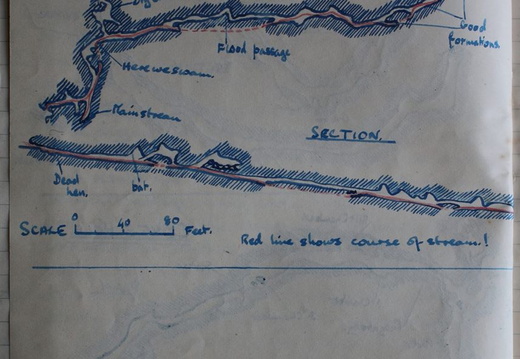 Good
formations.
Flood passage
Here we swam.
Main stream
SECTION.
Dead
hen.
bat.
SCALE 0 40 80 Feet.
Red line shows course of stream!